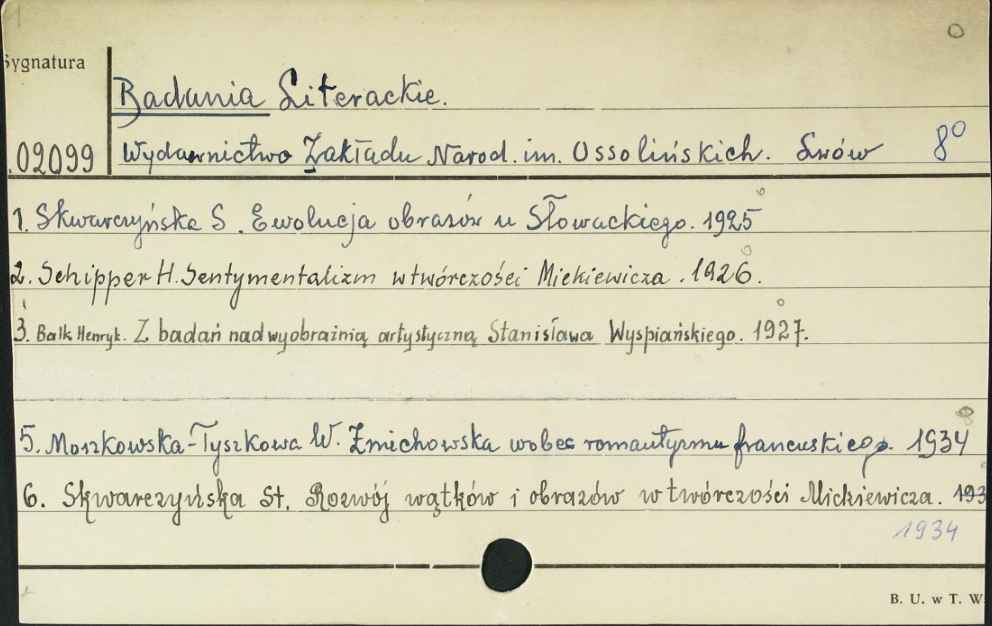 Sygnatura
Badania Literackie.
02099 Wydawnictwo Zakładu Narod. im. Ossolińskich. Lwów 8°
1. Skwarczyńska S. Ewolucja obrazów u Słowackiego. 1925
2. Schipper H. Sentymentalizm w twórczości Mickiewicza. 1926.
3. Balk Henryk. Z badań nad wyobraźnią artystyczną Stanisława Wyspiańskiego. 1927.
5. Moszkowska-Tyszkowa W. Żmichowska wobec romantyzmu francuskiego. 1934
6. Skwarczyńska St. Rozwój wątków i obrazów w twórczości Mickiewicza. 193
1934
B. U. w T. W.